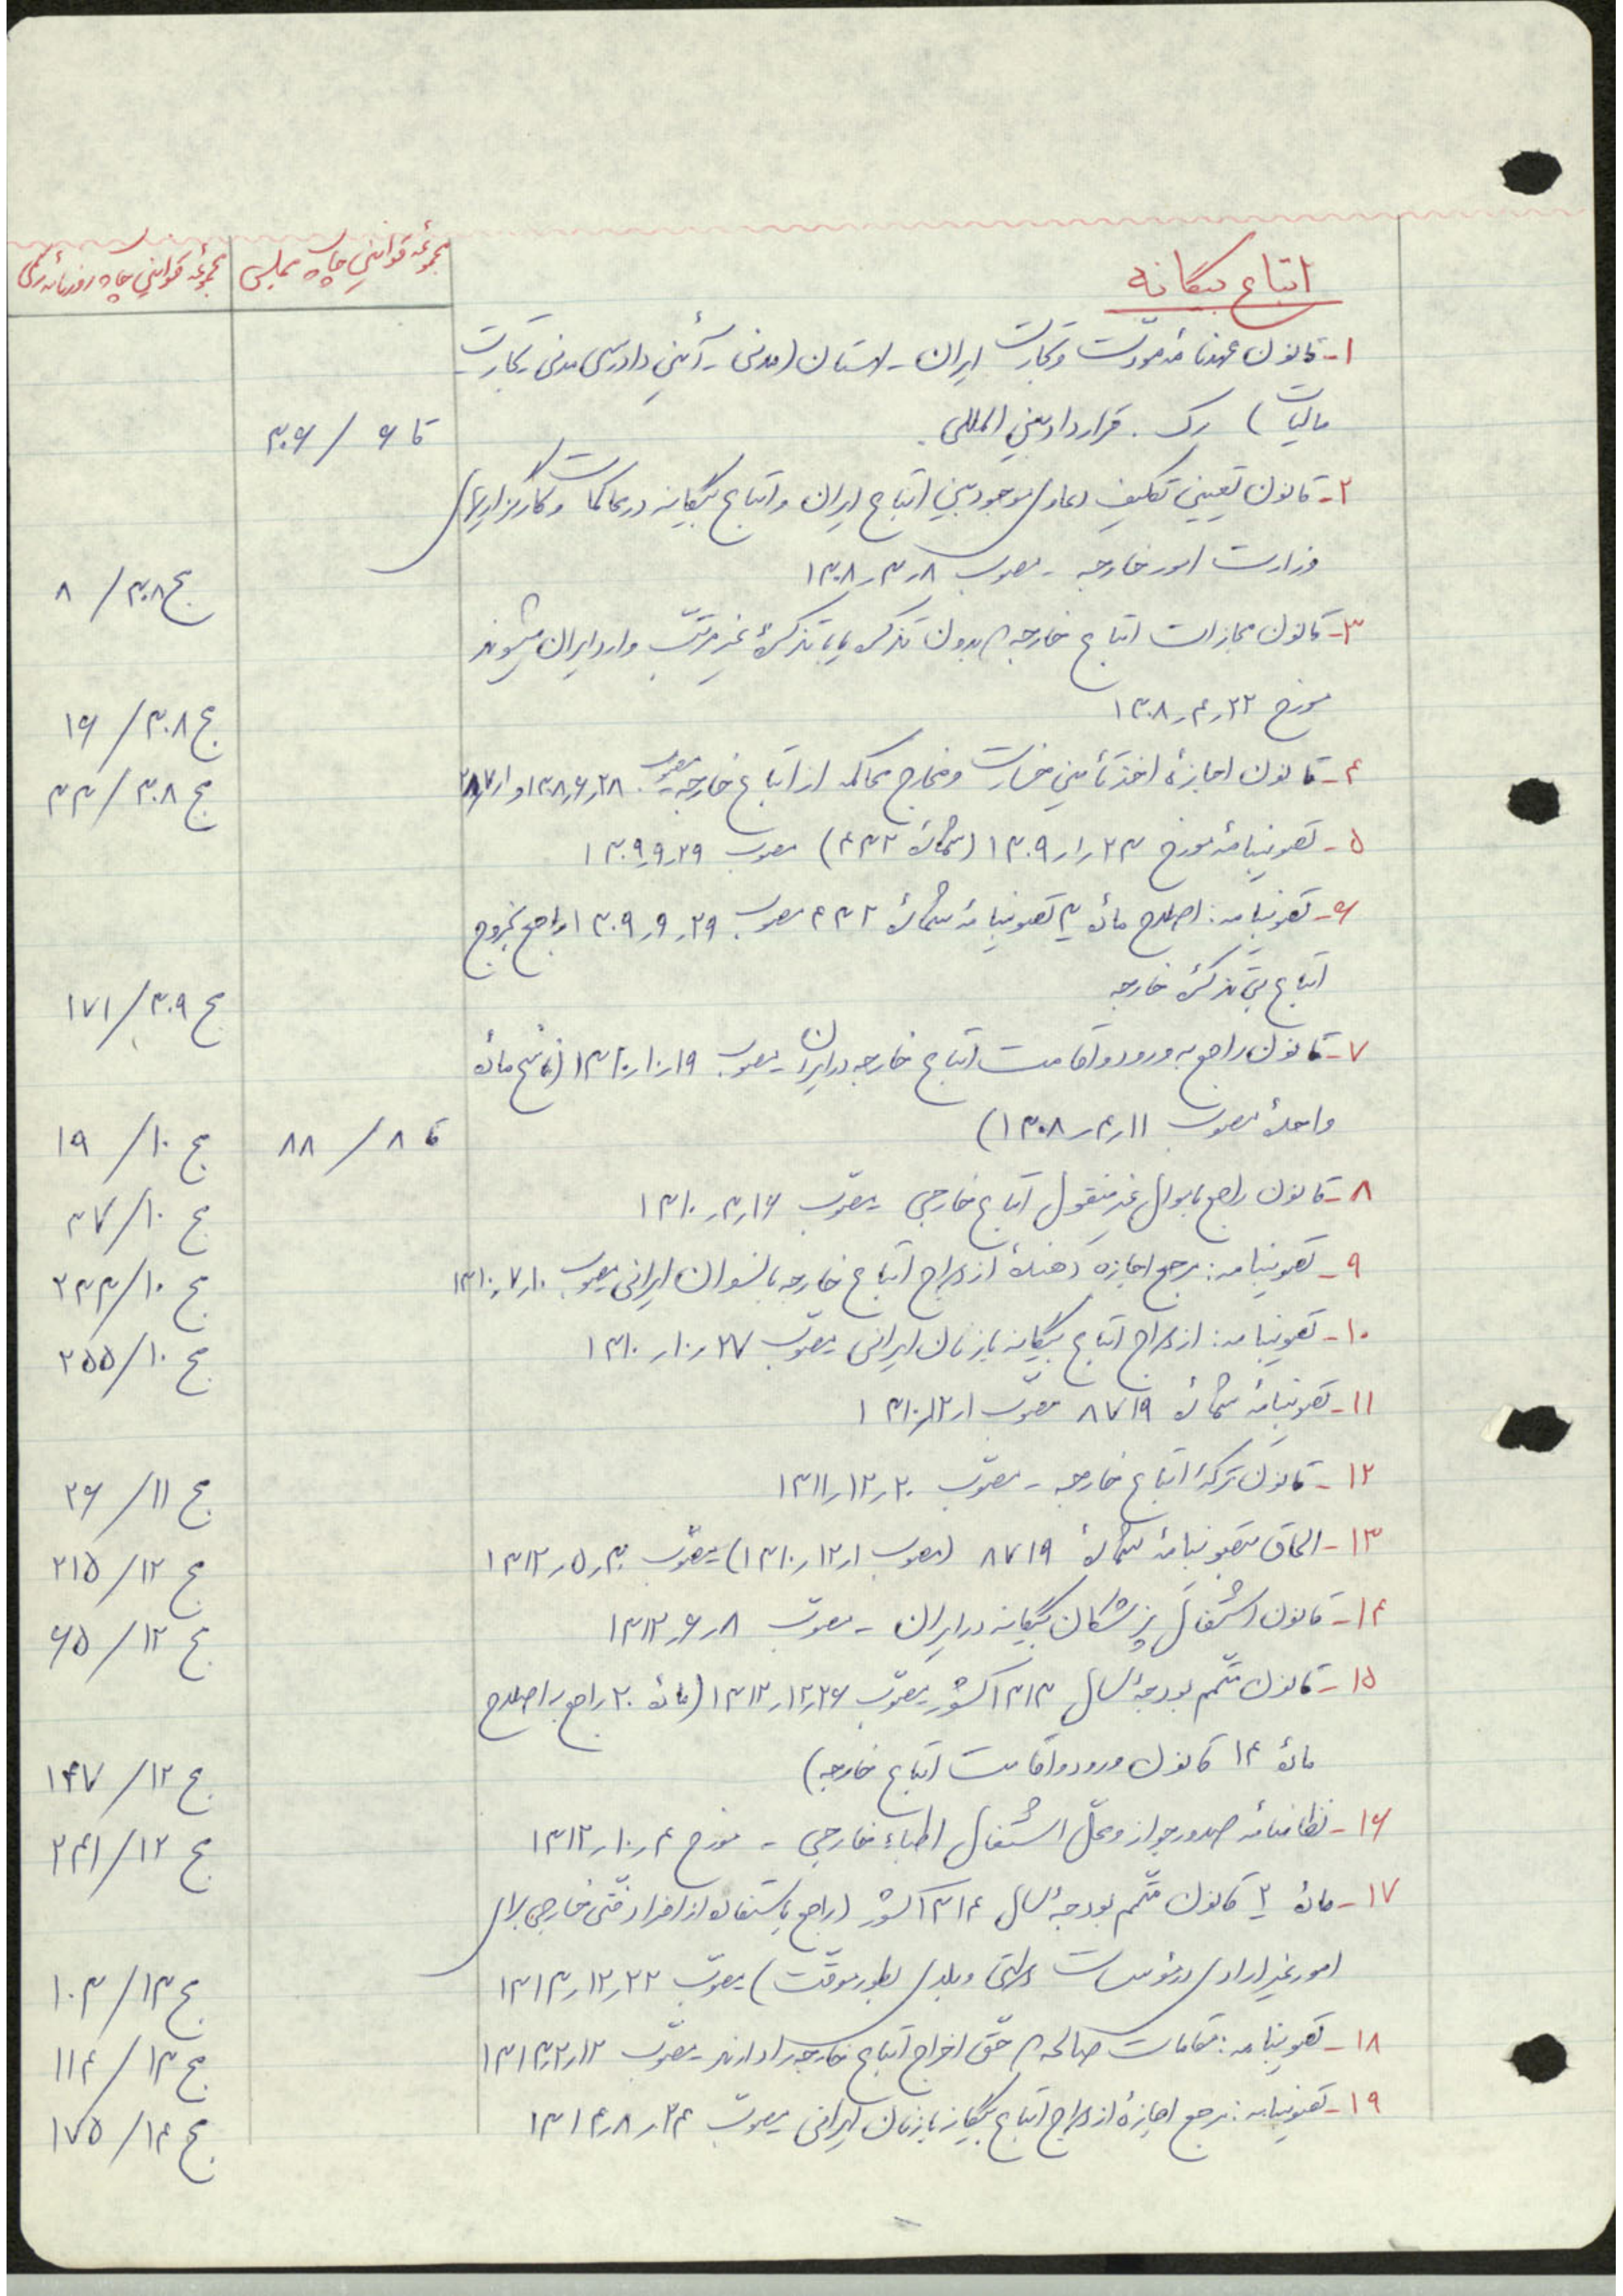 اتباع بیگانه
مجموعهٔ قوانین چاپ مجلس
مجموعهٔ قوانین چاپ روزنامهٔ رسمی
۱- قانون عهدنامهٔ مودّت و تجارت ایران - لهستان (مدنی - آئین دادرسی مدنی - تجارت -
مالیات) رک. قرارداد بین المللی.
قا ۶ / ۳۰۶
۲- قانون تعیین تکلیف دعاوی موجود بین اتباع ایران و اتباع بیگانه در محاکمات و کارگزاریهای
وزارت امور خارجه - مصوب ۸ر۳ر۱۳۰۸
مج ۳۰۸ / ۸
۳- قانون مجازات اتباع خارجه که بدون تذکره یا با تذکرهٔ غیر مرتّب وارد ایران میشوند
مورخ ۲۲ر۴ر۱۳۰۸
مج ۳۰۸ / ۱۶
۴- قانون اجازهٔ اخذ تأمین خسارت و مخارج محاکمه از اتباع خارجه - مصوب ۲۸ر۶ر۱۳۰۸ و
مج ۳۰۸ / ۳۳
۵- تصویبنامهٔ مورخ ۲۳ر۱ر۱۳۰۹ (شمارهٔ ۴۳۲) مصوب ۲۹ر۹ر۱۳۰۹
۶- تصویبنامه: اصلاح مادهٔ ۳ تصویبنامهٔ شمارهٔ ۴۳۲ مصوب ۲۹ر۹ر۱۳۰۹ راجع بخروج
اتباع بی تذکرهٔ خارجه
مج ۳۰۹ / ۱۷۱
۷- قانون راجع به ورود و اقامت اتباع خارجه در ایران - مصوب ۱۹ر۱۰ر۱۳۱۰ (ناسخ مادهٔ
واحدهٔ مصوب ۱۱ر۴ر۱۳۰۸)
قا ۸ / ۸۸
مج ۱۰ / ۱۹
۸- قانون راجع باموال غیر منقول اتباع خارجی - مصوّب ۱۶ر۳ر۱۳۱۰
مج ۱۰ / ۳۷
۹- تصویبنامه: مرجع اجازه دهندهٔ ازدواج اتباع خارجه با نسوان ایرانی مصوب ۱۰ر۷ر۱۳۱۰
مج ۱۰ / ۲۳۳
۱۰- تصویبنامه: ازدواج اتباع بیگانه با زنان ایرانی - مصوّب ۲۷ر۱۰ر۱۳۱۰
مج ۱۰ / ۲۵۵
۱۱- تصویبنامهٔ شمارهٔ ۸۷۱۹ مصوّب ۱ر۱۲ر۱۳۱۰
۱۲- قانون ترکهٔ اتباع خارجه - مصوّب ۲۰ر۱۲ر۱۳۱۱
مج ۱۱ / ۲۶
۱۳- الحاق بتصویبنامهٔ شمارهٔ ۸۷۱۹ (مصوب ۱ر۱۲ر۱۳۱۰) - مصوّب ۳۰ر۵ر۱۳۱۲
مج ۱۲ / ۲۱۵
۱۴- قانون اشتغال پزشکان بیگانه در ایران - مصوّب ۸ر۶ر۱۳۱۲
مج ۱۲ / ۶۵
۱۵- قانون متّمم بودجهٔ سال ۱۳۱۳ کشور - مصوّب ۲۶ر۱۲ر۱۳۱۲ (مادهٔ ۲۰ راجع به اصلاح
مادهٔ ۱۴ قانون ورود و اقامت اتباع خارجه)
مج ۱۲ / ۱۴۷
۱۶- نظامنامهٔ صدور جواز و محلّ اشتغال اطباء خارجی - مورخ ۴ر۱۰ر۱۳۱۲
مج ۱۲ / ۲۴۱
۱۷- مادهٔ ۲ قانون متّمم بودجهٔ سال ۱۳۱۴ کشور (راجع باستفاده از افراد فنّی خارجی برای
امور غیر اداری در مؤسسات دولتی و بلدی بطور موقّت) مصوّب ۲۲ر۱۲ر۱۳۱۳
مج ۱۳ / ۱۰۳
۱۸- تصویبنامه: مقامات صالحه که حقّ اخراج اتباع خارجه را دارند - مصوّب ۱۲ر۲ر۱۳۱۳
مج ۱۳ / ۱۱۴
۱۹- تصویبنامه: مرجع اجازهٔ ازدواج اتباع بیگانه با زنان ایرانی مصوّب ۲۴ر۸ر۱۳۱۴
مج ۱۴ / ۱۷۵